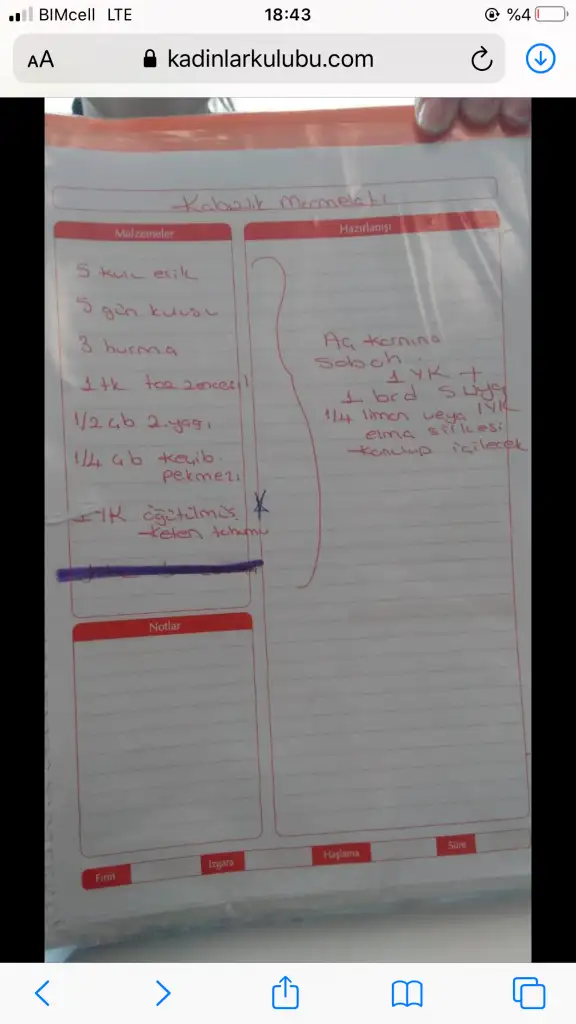 BIMcell LTE 18:43 %4
AA kadinlarkulubu.com
Kabızlık Marmelatı
Malzemeler
5 kuru erik
5 gün kurusu
3 hurma
1 tk toz zencefil
1/2 çb z.yağı
1/4 çb keçib.
pekmezi
1 YK öğütülmüş
keten tohumu
Hazırlanışı
Aç karnına
Sabah
1 YK +
1 brd Suya
1/4 limon veya 1YK
elma sirkesi
konulup içilecek
Notlar
Fırın
Izgara
Haşlama
Süre